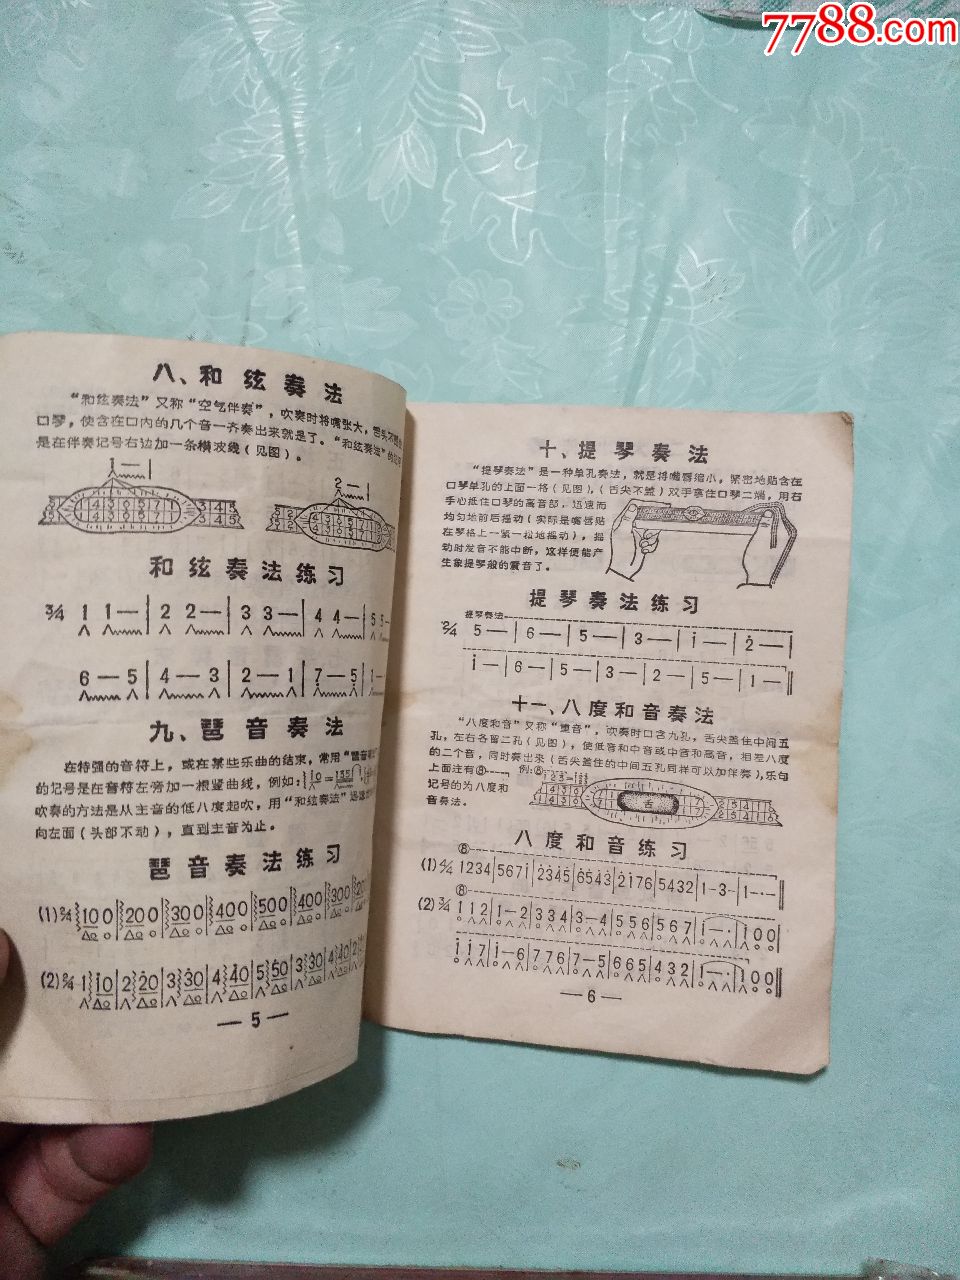 7788.com
八、和弦奏法
“和弦奏法”又称“空气伴奏”，吹奏时将嘴张大，舌头不
口琴，使含在口内的几个音一齐奏出来就是了。“和弦奏法”的
是在伴奏记号右边加一条横波线（见图）。
1—|
2—|
和弦奏法练习
3/4 1 1—|2 2—|3 3—|4 4—|5 5—
6—5|4—3|2—1|7—5|1—
九、琶音奏法
在特强的音符上，或在某些乐曲的结束，常用“琶音奏法”
的记号是在音符左旁加一根竖曲线，例如：
吹奏的方法是从主音的低八度起吹，用“和弦奏法”迅速
向左面（头部不动），直到主音为止。
琶音奏法练习
(1) 2/4 100|200|300|400|500|400|300|
(2) 2/4 1 10|2 20|3 30|4 40|5 50|3 30|4 40|2
— 5 —
十、提琴奏法
“提琴奏法”是一种单孔奏法，就是将嘴唇缩小，紧密地贴含在
口琴单孔的上面一格（见图），（舌尖不盖）双手拿住口琴二端，用右
手心抵住口琴的高音部，迅速而
均匀地前后摇动（实际是嘴唇贴
在琴格上一紧一松地摇动），摇
动时发音不能中断，这样便能产
生象提琴般的震音了。
提琴奏法练习
提琴奏法
2/4 5—|6—|5—|3—|i—|2—|
i—|6—|5—|3—|2—|5—|1—‖
十一、八度和音奏法
“八度和音”又称“重音”，吹奏时口含九孔，舌尖盖住中间五
孔，左右各留二孔（见图），使低音和中音或中音和高音，相差八度
的二个音，同时奏出来（舌尖盖住的中间五孔同样可以加伴奏），乐句
上面注有⑧
例：⑧
记号的为八度和
音奏法。
舌
八度和音练习
⑧
(1) 4/4 1234|567i|2345|6543|2176|5432|1-3-|1---‖
⑧
(2) 3/4 112|1-2|334|3-4|556|567|i-·|i00|
ii7|i-6|776|7-5|665|432|1-·|100‖
— 6 —